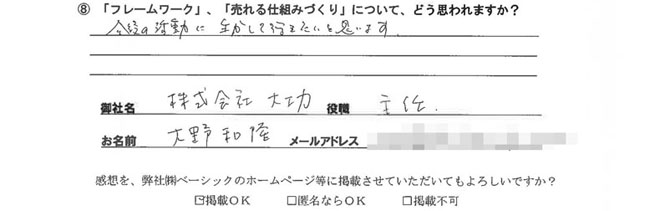 ⑧「フレームワーク」、「売れる仕組みづくり」について、どう思われますか？
今後の活動に生かして行きたいと思います
御社名 株式会社 大功 役職 主任.
お名前 大野和隆 メールアドレス
感想を、弊社㈱ベーシックのホームページ等に掲載させていただいてもよろしいですか？
☑掲載ＯＫ □匿名ならＯＫ □掲載不可